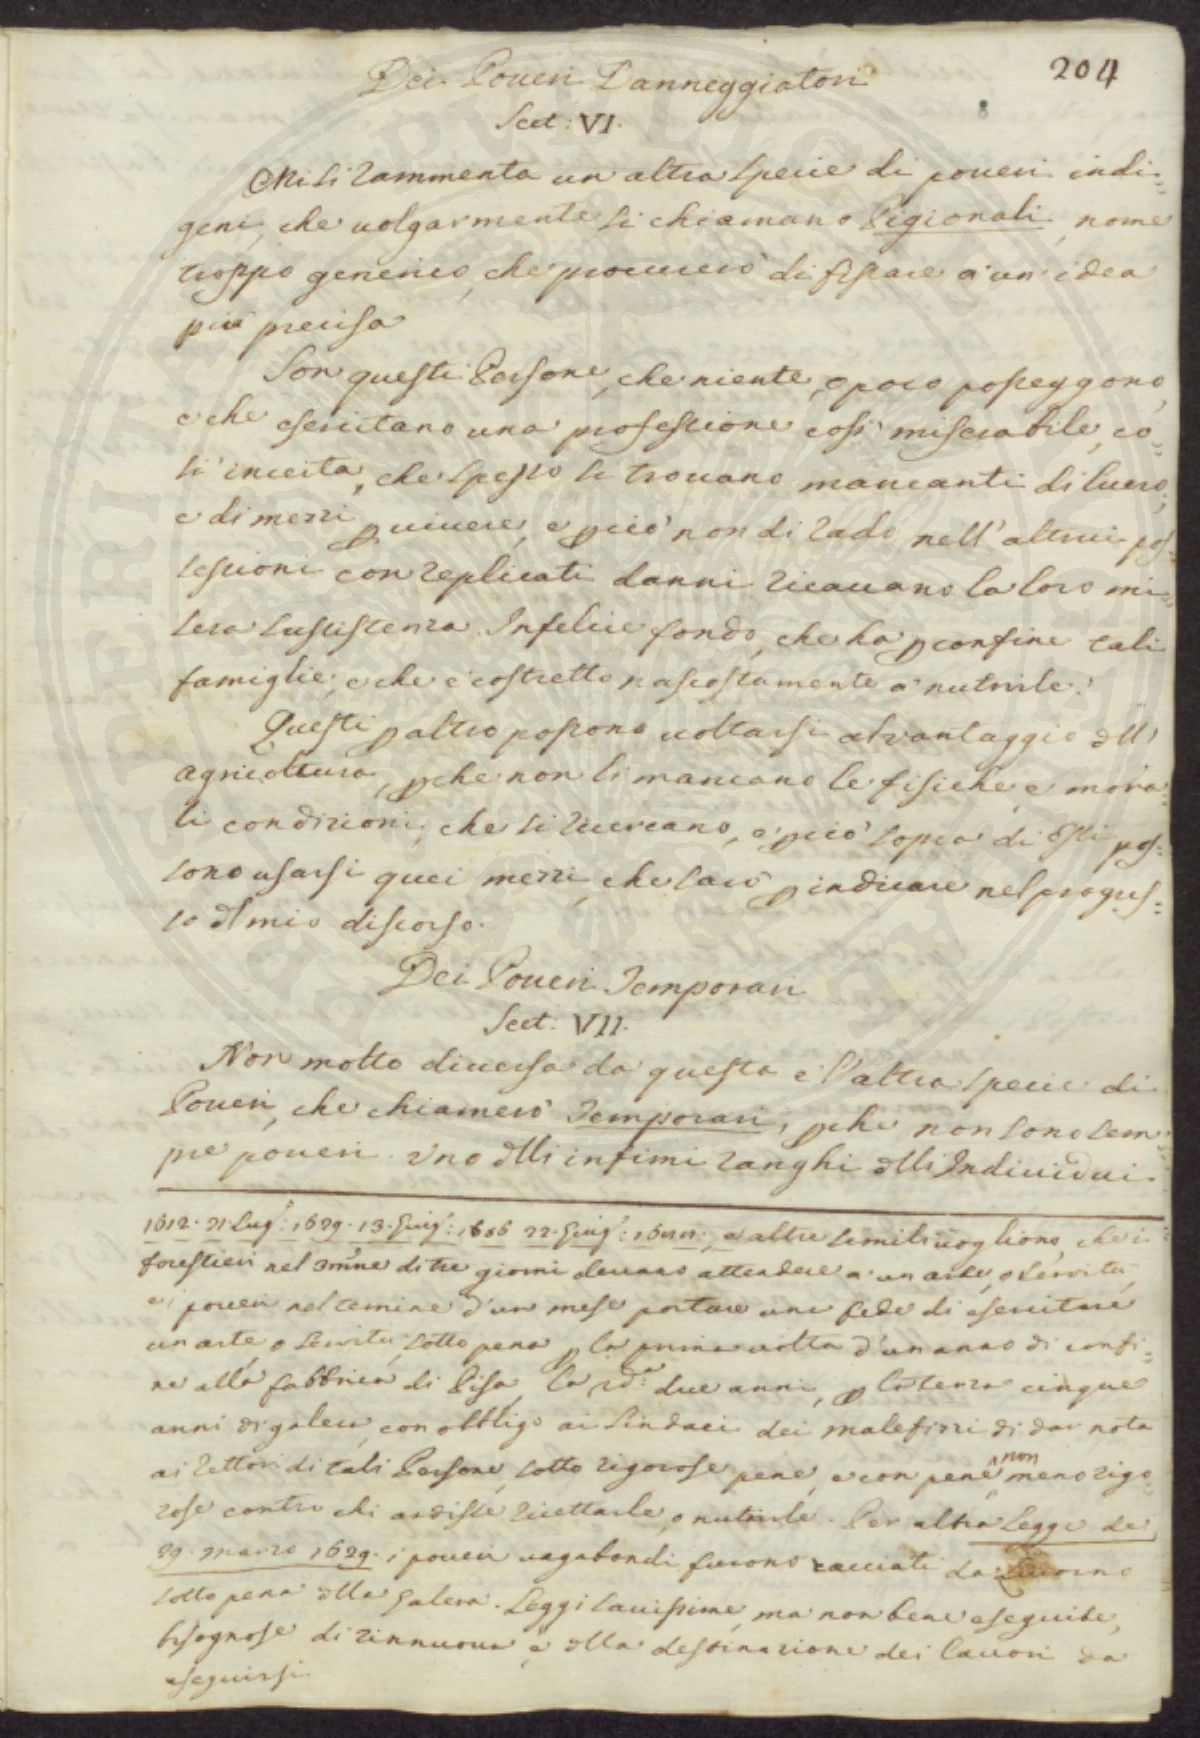 204
Dei Poveri Danneggiatori
Sect: VI.
Mi si rammenta un altra specie di poveri indi=
geni, che volgarmente si chiamano Pigionali, nome
troppo generico, che procurerò di fissare a un idea
più precisa
Son questi Persone, che niente, o poco posseggono,
e che esercitano una professione così miserabile, co=
sì incerta, che spesso si trovano mancanti di lucro,
e di mezzi p vivere, e pciò non di rado nell'altrui pos=
sessioni con replicati danni ricavano la loro mi=
sera sussistenza. Infelice fondo, che ha p confine tali
famiglie, e che è costretto nascostamente a nutrirle.
Questi p altro possono voltarsi al vantaggio dell'
agricoltura, pche non li mancano le fisiche, e mora=
li condizioni, che si ricercano, e pciò sopra di essi pos=
sono usarsi quei mezzi, che sarò p indicare nel progres=
so dl mio discorso.
Dei Poveri Temporari
Sect: VII.
Non molto diversa da questa è l'altra specie di
Poveri, che chiamerò Temporari, pche non sono sem
pre poveri. Uno dlli infimi ranghi dlli Individui
1612. 21. Lug: 1629. 13. Giug: 1656 22. Giug: e altre simili vogliono, che i
forestieri nel di tre giorni devano attendere a un arte, o servitù,
e i poveri nel termine d'un mese portare una fede di esercitare
un arte, o servitù, sotto pena p la prima volta d'un anno di confi=
ne alla fabbrica di Pisa, la 2da due anni, p la terza cinque
anni di galera, con obbligo ai Sindaci dei malefizzi di dar nota
ai Rettori di tali Persone, sotto rigorose pene, e con pene non meno rigo=
rose contro chi ardisse ricettarle, o nutrirle. Per altra Legge de
29. marzo 1629. i poveri vagabondi furono cacciati da Livorno
sotto pena dlla Galera. Leggi savissime, ma non bene eseguite,
bisognose di rinnuova, e dlla destinazione dei lavori da
eseguirsi